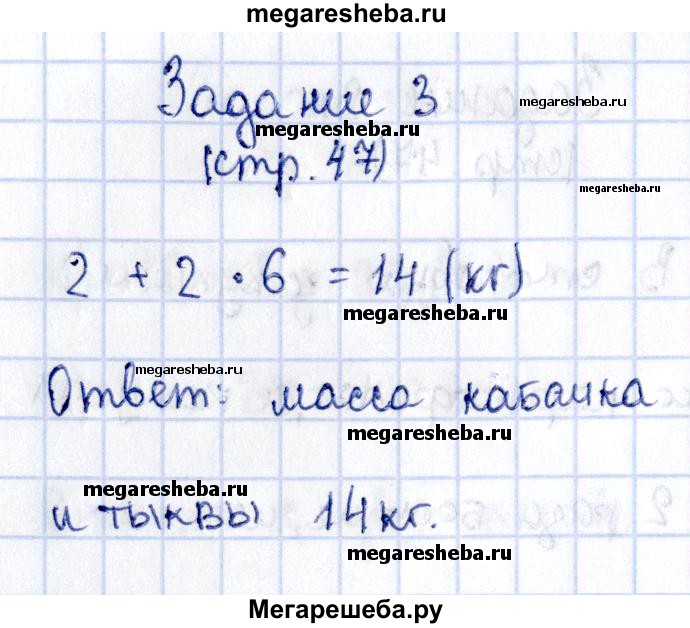 megaresheba.ru
Задание 3
megaresheba.ru
megaresheba.ru
(стр. 47)
megaresheba.ru
2 + 2 · 6 = 14 (кг)
megaresheba.ru
megaresheba.ru
Ответ: масса кабачка
megaresheba.ru
megaresheba.ru
и тыквы 14 кг.
megaresheba.ru
Мегарешеба.ру